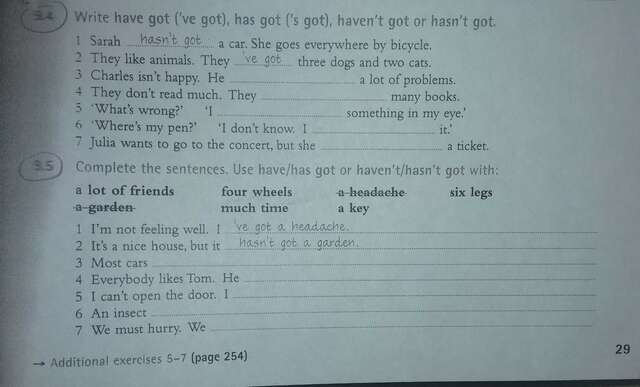 9.4 Write have got ('ve got), has got ('s got), haven't got or hasn't got.
1 Sarah hasn't got a car. She goes everywhere by bicycle.
2 They like animals. They 've got three dogs and two cats.
3 Charles isn't happy. He a lot of problems.
4 They don't read much. They many books.
5 'What's wrong?' 'I something in my eye.'
6 'Where's my pen?' 'I don't know. I it.'
7 Julia wants to go to the concert, but she a ticket.
9.5 Complete the sentences. Use have/has got or haven't/hasn't got with:
a lot of friends four wheels a headache six legs
a garden much time a key
1 I'm not feeling well. I 've got a headache.
2 It's a nice house, but it hasn't got a garden.
3 Most cars
4 Everybody likes Tom. He
5 I can't open the door. I
6 An insect
7 We must hurry. We
→ Additional exercises 5–7 (page 254)
29